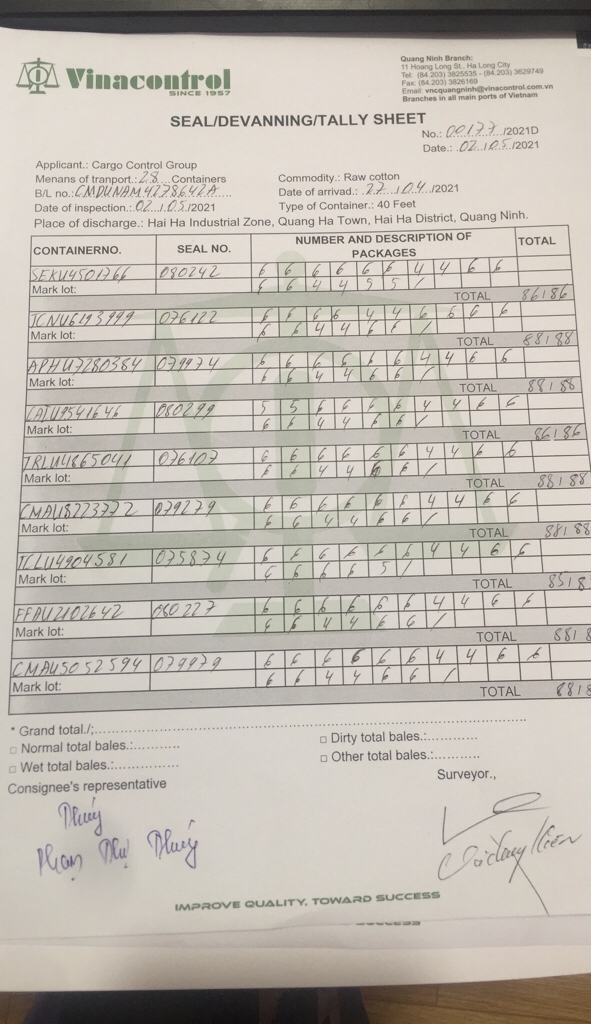 Vinacontrol
SINCE 1957
Quang Ninh Branch:
11 Hoang Long St., Ha Long City
Tel: (84.203) 3825535 - (84.203) 3629749
Fax: (84.203) 3826169
Email: vncquangninh@vinacontrol.com.vn
Branches in all main ports of Vietnam
SEAL/DEVANNING/TALLY SHEET
No.: 00177 /2021D
Date.: 02.05/2021
Applicant.: Cargo Control Group
Menans of tranport.: 28 Containers
Commodity.: Raw cotton
B/L no.: CMDUNAM4278642A
Date of arrivad.: 27/04/2021
Date of inspection.: 02/05/2021
Type of Container.: 40 Feet
Place of discharge.: Hai Ha Industrial Zone, Quang Ha Town, Hai Ha District, Quang Ninh.
CONTAINERNO. SEAL NO. NUMBER AND DESCRIPTION OF PACKAGES TOTAL
SEKU4501766 080242 6 6 6 6 6 6 4 4 6 6
Mark lot: 6 6 4 4 5 5 /
TOTAL 86/86
TCNU6193999 076122 6 6 6 6 4 4 6 6 6 6
Mark lot: 6 6 4 4 6 6 /
TOTAL 88/88
APHU7280384 079974 6 6 6 6 6 6 4 4 6 6
Mark lot: 6 6 4 4 6 6 /
TOTAL 88/88
CAIU9541646 080299 5 5 6 6 6 6 4 4 6 6
Mark lot: 6 6 4 4 6 6 /
TOTAL 86/86
TRLU4865041 076107 6 6 6 6 6 6 4 4 6 6
Mark lot: 6 6 4 4 6 6 /
TOTAL 88/88
CMAU8223772 079279 6 6 6 6 6 6 4 4 6 6
Mark lot: 6 6 4 4 6 6 /
TOTAL 88/88
TCLU4904581 075874 6 6 6 6 6 6 4 4 6 6
Mark lot: 6 6 6 6 5 /
TOTAL 85/8
FFAU2102642 080227 6 6 6 6 6 6 4 4 6 6
Mark lot: 6 6 4 4 6 6 /
TOTAL 88/8
CMAU5052594 079979 6 6 6 6 6 6 4 4 6 6
Mark lot: 6 6 4 4 6 6 /
TOTAL 88/8
* Grand total./:
□ Normal total bales.:
□ Dirty total bales.:
□ Wet total bales.:
□ Other total bales.:
Consignee's representative
Surveyor.,
Thúy
Phạm Thị Thúy
IMPROVE QUALITY, TOWARD SUCCESS